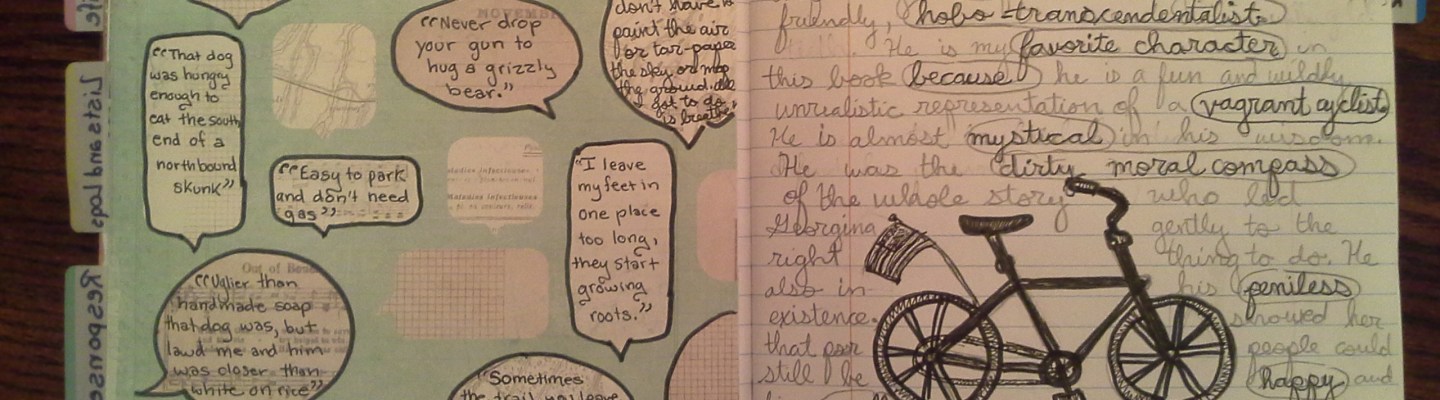 Lists and Logs
Response
"That dog
was hungry
enough to
eat the south
end of a
northbound
skunk"
NOVEMBE
"Never drop
your gun to
hug a grizzly
bear."
don't have to
paint the air
or tar-paper
the sky or mop
the ground. All
I got to do
is breathe
"Easy to park
and don't need
gas"
"I leave
my feet in
one place
too long,
they start
growing
roots."
Out of
"Uglier than
handmade soap
that dog was, but
lawd me and him
was closer than
white on rice"
"Sometimes
the trail you leave
friendly, hobo-transcendentalist.
He is my favorite character in
this book because he is a fun and wildly
unrealistic representation of a vagrant cyclist
He is almost mystical in his wisdom.
He was the dirty moral compass
of the whole story who led
Georgina gently to the
right thing to do. He
also in his peniless
existence. showed her
that poor people could
still be happy and